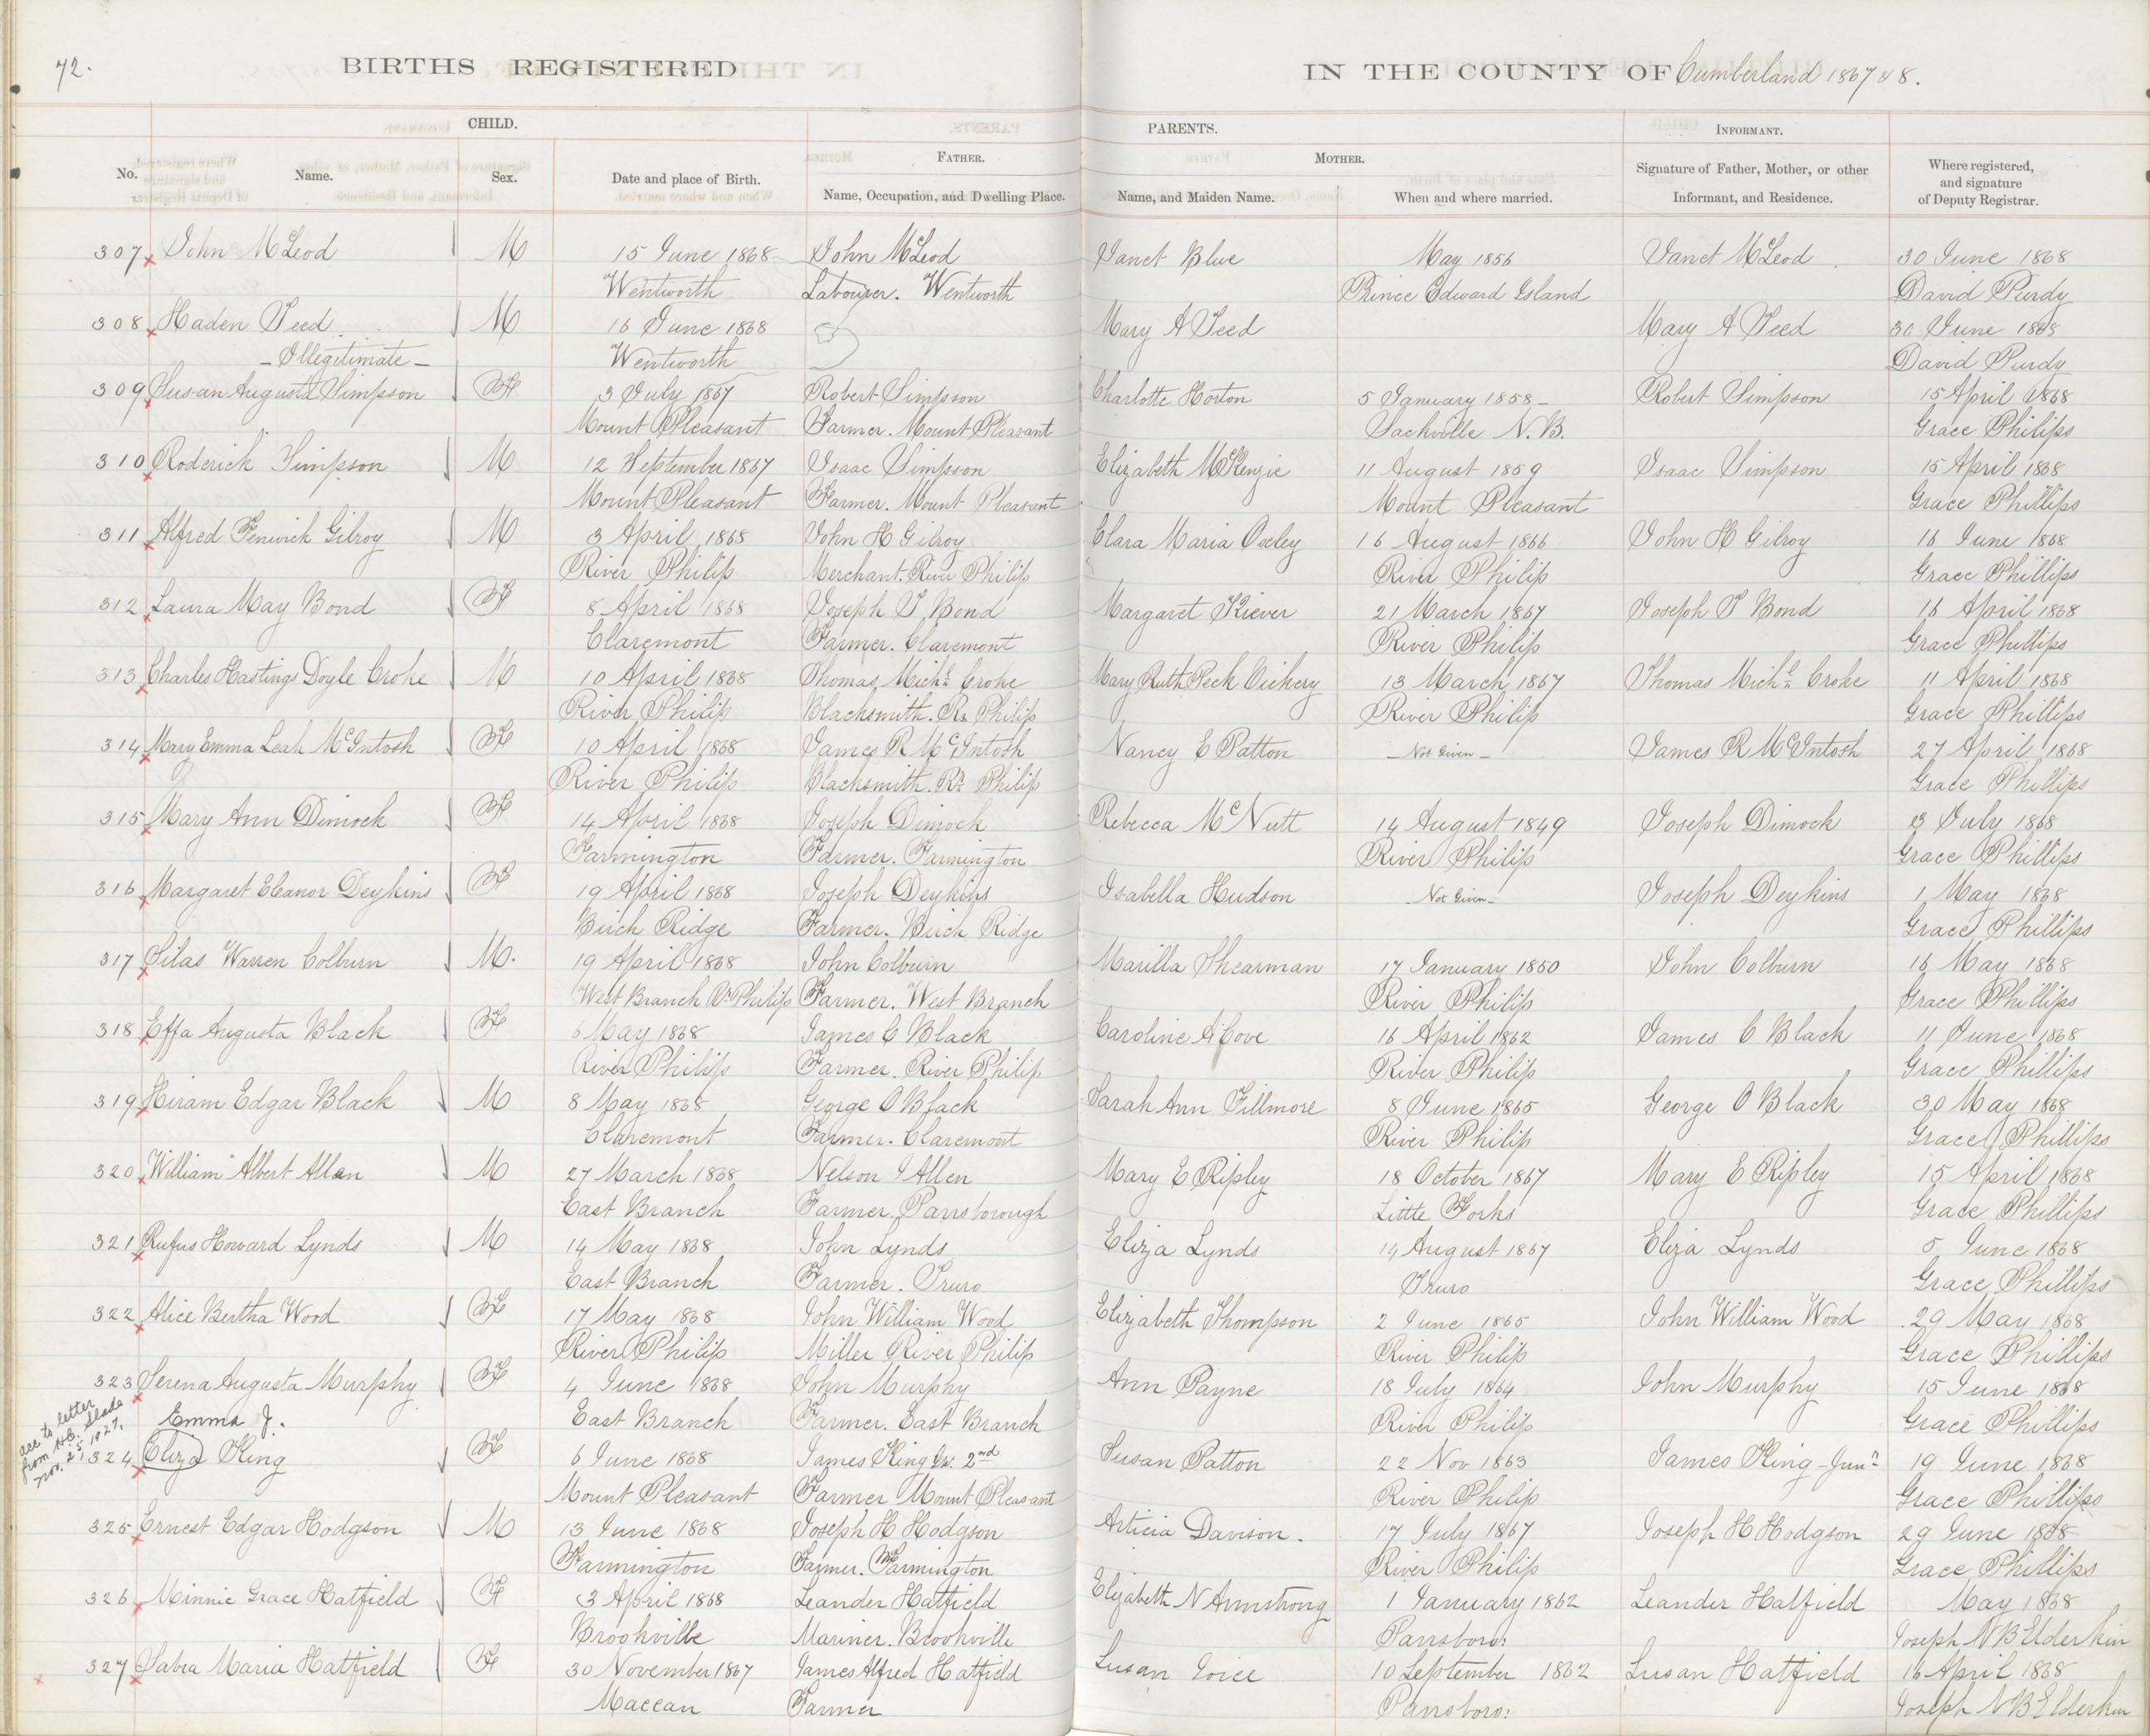 72.
BIRTHS REGISTERED IN THE COUNTY OF Cumberland 1867 & 8.
CHILD. PARENTS. INFORMANT.
No. Name. Sex. Date and place of Birth. FATHER. Name, Occupation, and Dwelling Place. MOTHER. Name, and Maiden Name. When and where married. Signature of Father, Mother, or other Informant, and Residence. Where registered, and signature of Deputy Registrar.
307 John McLeod M 15 June 1868 John McLeod Janet Blue May 1856 Janet McLeod 30 June 1868
Wentworth Labourer. Wentworth Prince Edward Island David Purdy
308 Haden Teed M 16 June 1868 Mary A Teed Mary A Teed 30 June 1868
- Illegitimate - Wentworth David Purdy
309 Susan Augusta Simpson F 3 July 1867 Robert Simpson Charlotte Horton 5 January 1858 - Robert Simpson 15 April 1868
Mount Pleasant Farmer. Mount Pleasant Sackville N.B. Grace Philips
310 Roderick Simpson M 12 September 1867 Isaac Simpson Elizabeth McKenzie 11 August 1859 Isaac Simpson 15 April 1868
Mount Pleasant Farmer. Mount Pleasant Mount Pleasant Grace Phillips
311 Alfred Fenwick Gilroy M 3 April 1868 John H Gilroy Clara Maria Oxley 16 August 1866 John H Gilroy 16 June 1868
River Philip Merchant. River Philip River Philip Grace Phillips
312 Laura May Bond F 8 April 1868 Joseph T Bond Margaret Kiever 21 March 1867 Joseph T Bond 16 April 1868
Claremont Farmer. Claremont River Philip Grace Phillips
313 Charles Hastings Doyle Croke M 10 April 1868 Thomas Michl Croke Mary Ruth Peck Vickery 13 March 1867 Thomas Michl Croke 11 April 1868
River Philip Blacksmith. Rr Philip River Philip Grace Phillips
314 Mary Emma Leah McIntosh F 10 April 1868 James R McIntosh Nancy E Patton - Not Given - James R McIntosh 27 April 1868
River Philip Blacksmith. Rr Philip Grace Phillips
315 Mary Ann Dimock F 14 April 1868 Joseph Dimock Rebecca McNutt 14 August 1849 Joseph Dimock 3 July 1868
Farmington Farmer. Farmington River Philip Grace Phillips
316 Margaret Eleanor Deykins F 19 April 1868 Joseph Deykins Isabella Hudson - Not Given - Joseph Deykins 1 May 1868
Birch Ridge Farmer. Birch Ridge Grace Phillips
317 Silas Warren Colburn M. 19 April 1868 John Colburn Marilla Shearman 17 January 1860 John Colburn 16 May 1868
West Branch Rr Philip Farmer. West Branch River Philip Grace Phillips
318 Effa Augusta Black F 6 May 1868 James C Black Caroline A Cove 16 April 1862 James C Black 11 June 1868
River Philip Farmer. River Philip River Philip Grace Phillips
319 Hiram Edgar Black M 8 May 1868 George O Black Sarah Ann Fillmore 8 June 1865 George O Black 30 May 1868
Claremont Farmer. Claremont River Philip Grace Phillips
320 William Albert Allan M 27 March 1868 Nelson Allen Mary E Ripley 18 October 1867 Mary E Ripley 15 April 1868
East Branch Farmer. Parrsborough Little Forks Grace Phillips
321 Rufus Howard Lynds M 14 May 1868 John Lynds Eliza Lynds 14 August 1867 Eliza Lynds 5 June 1868
East Branch Farmer. Truro Truro Grace Phillips
322 Alice Bertha Wood F 17 May 1868 John William Wood Elizabeth Thompson 2 June 1865 John William Wood 29 May 1868
River Philip Miller River Philip River Philip Grace Phillips
323 Serena Augusta Murphy F 4 June 1868 John Murphy Ann Payne 18 July 1864 John Murphy 15 June 1868
East Branch Farmer. East Branch River Philip Grace Phillips
acc to letter from H.C. Slade Nov. 25, 1927,
Emma J.
324 Eliza King F 6 June 1868 James King Jr. 2nd Susan Patton 22 Nov 1863 James King - Junr 19 June 1868
Mount Pleasant Farmer Mount Pleasant River Philip Grace Phillips
325 Ernest Edgar Hodgson M 13 June 1868 Joseph H Hodgson Articia Davison. 17 July 1867 Joseph H Hodgson 29 June 1868
Farmington Farmer. Farmington River Philip Grace Phillips
326 Minnie Grace Hatfield F 3 April 1868 Leander Hatfield Elizabeth N Armstrong 1 January 1862 Leander Hatfield May 1868
Brookville Mariner. Brookville Parrsboro: Joseph N B Elderkin
327 Sabra Maria Hatfield F 30 November 1867 James Alfred Hatfield Susan Voice 10 September 1862 Susan Hatfield 16 April 1868
Maccan Farmer Parrsboro: Joseph N B Elderkin